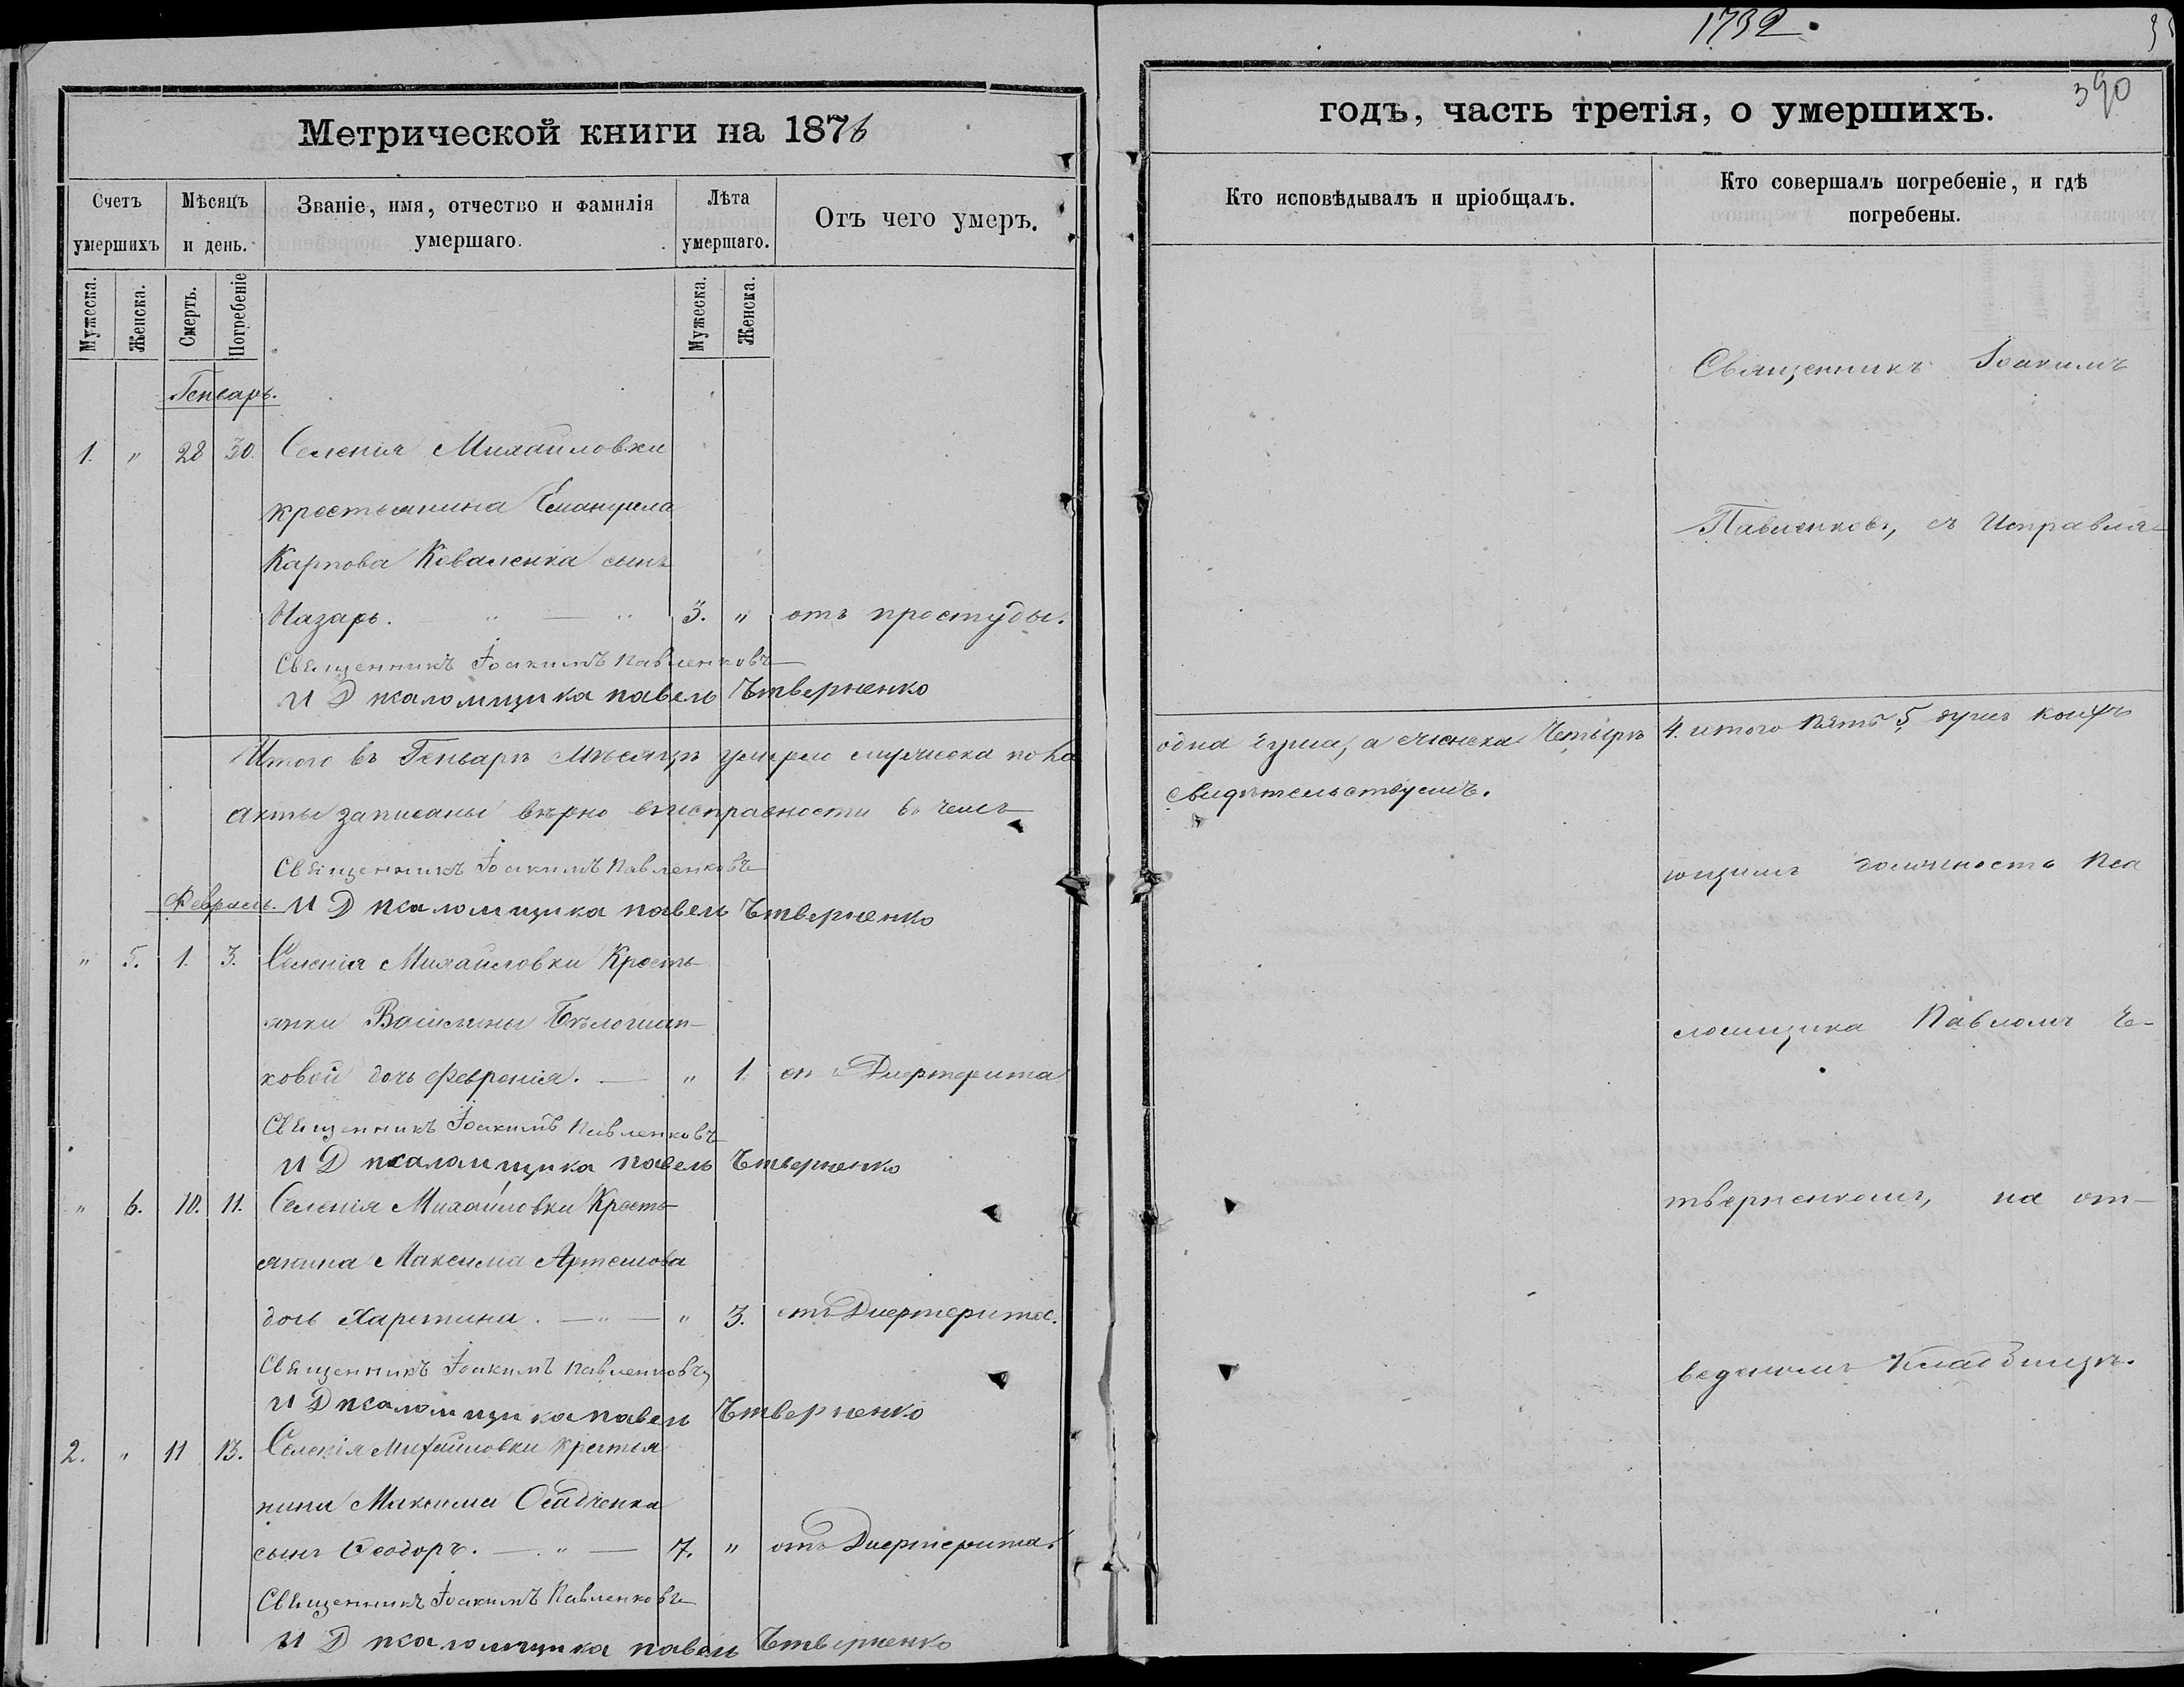 1732.
390
Метрической книги на 1876
годъ, часть третія, о умершихъ.
Счетъ умершихъ
Мѣсяцъ и день.
Званіе, имя, отчество и фамилія умершаго.
Лѣта умершаго.
Отъ чего умеръ.
Кто исповѣдывалъ и пріобщалъ.
Кто совершалъ погребеніе, и гдѣ погребены.
Мужеска.
Женска.
Смерть.
Погребеніе
Мужеска.
Женска.
Генварь.
1. " 28 30. Селенія Михайловки
крестьянина Емануила
Карпова Коваленка сынъ
Назарь. 3. " отъ простуды.
Священникъ Іоакимъ Павленковъ
И Д псаломщика павелъ Четверненко
Итого въ Генварѣ мѣсяцѣ умерло мужеска пола
акты записаны вѣрно въ исправности въ чемъ
Священникъ Іоакимъ Павленковъ
Февраль. И Д псаломщика павелъ Четверненко
" 5. 1. 3. Селенія Михайловки Кресть-
янки Василины
ковой дочь Февронія. " 1. отъ Дифтерита
Священникъ Іоакимъ Павленковъ
И Д псаломщика павелъ Четверненко
" 6. 10. 11. Селенія Михайловки Кресть-
янина Максима Артемова
дочь Харитина. " 3. отъ Дифтерита.
Священникъ Іоакимъ Павленковъ
И Д псаломщика павелъ Четверненко
2. " 11 13. Селенія Михайловки крестья
нина Максима Осадченка
сынъ Ѳеодоръ. 7. " отъ Дифтерита.
Священникъ Іоакимъ Павленковъ
И Д псаломщика павелъ Четверненко
Священникъ Іоакимъ
Павленковъ, съ Исправля-
одна душа, а женска Четыре 4. итого пять 5, душъ
свидѣтельствуемъ.
ющимъ должность Пса
ломщика Павломъ Че-
тверненкомъ, на от-
веденомъ Кладбищѣ.